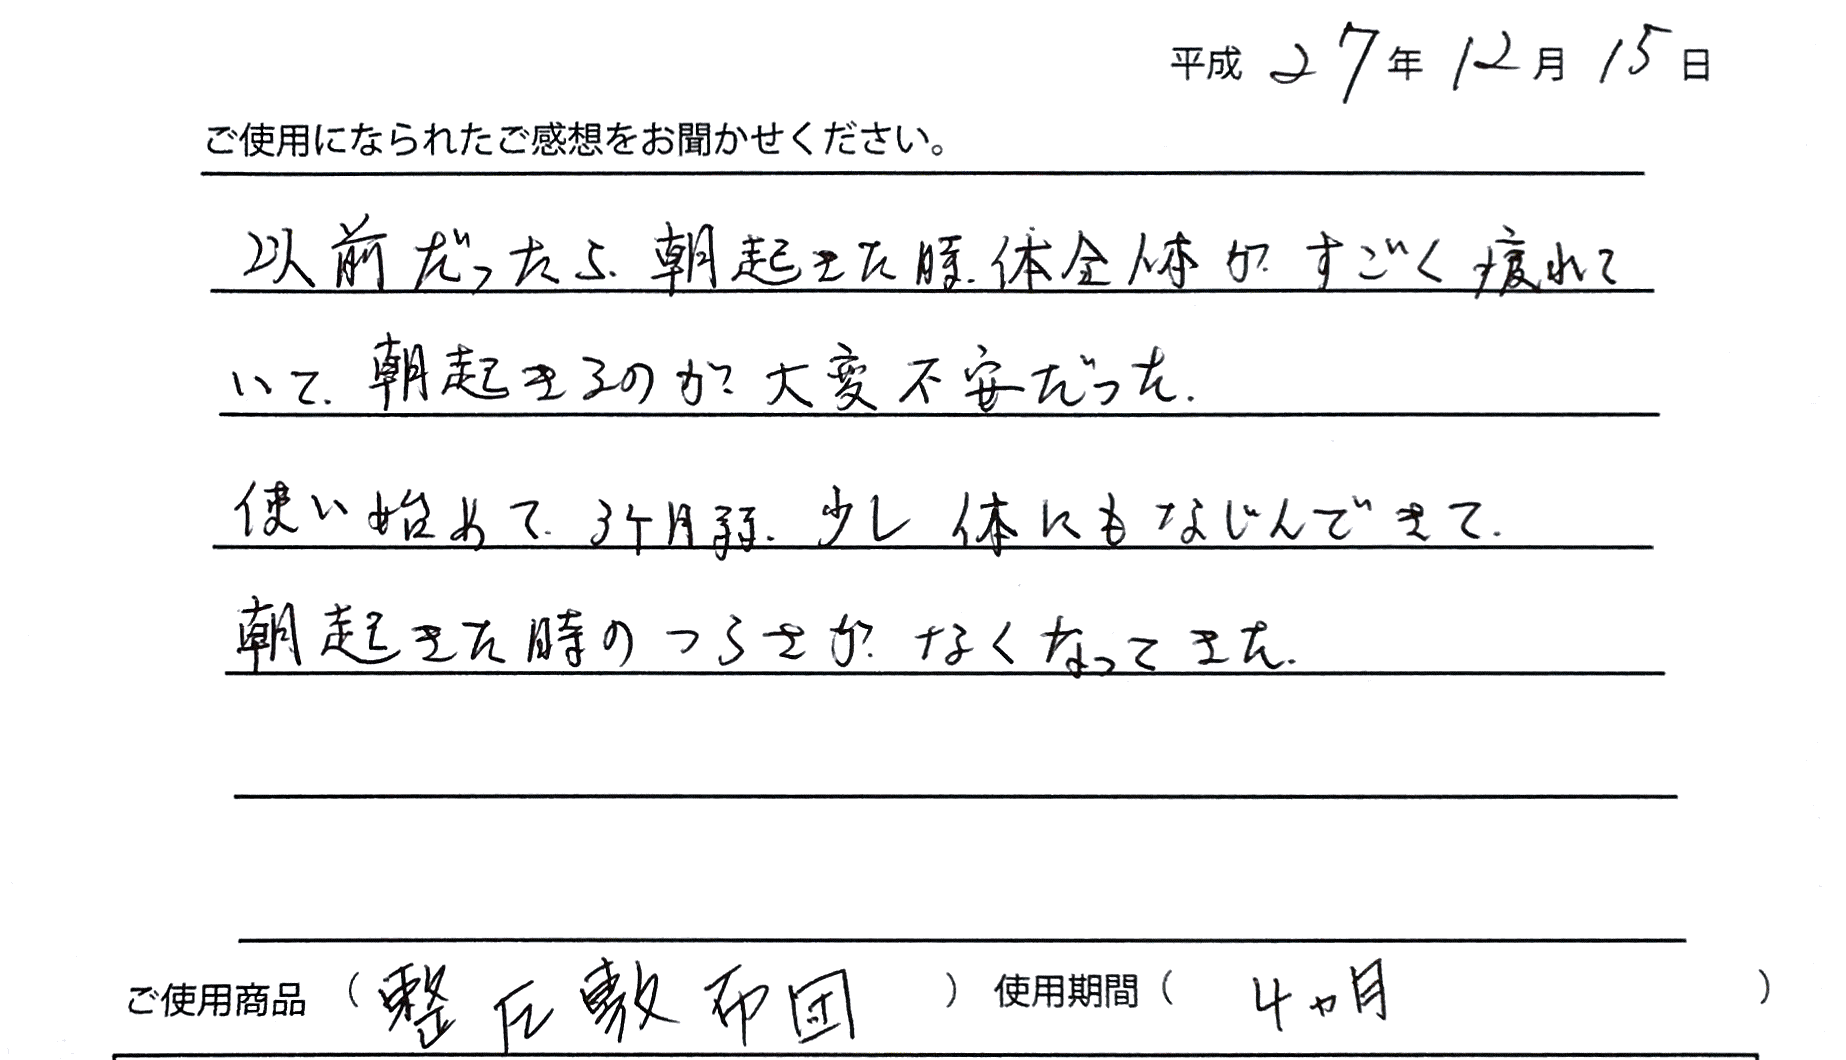 平成 27年 12月 15日
ご使用になられたご感想をお聞かせください。
以前だったら、朝起きた時、体全体が すごく疲れて
いて、朝起きるのが大変不安だった。
使い始めて、3ケ月弱、少し体にもなじんできて、
朝起きた時のつらさが、なくなってきた。
ご使用商品 ( 整圧敷布団 ) 使用期間 ( 4ヵ月 )